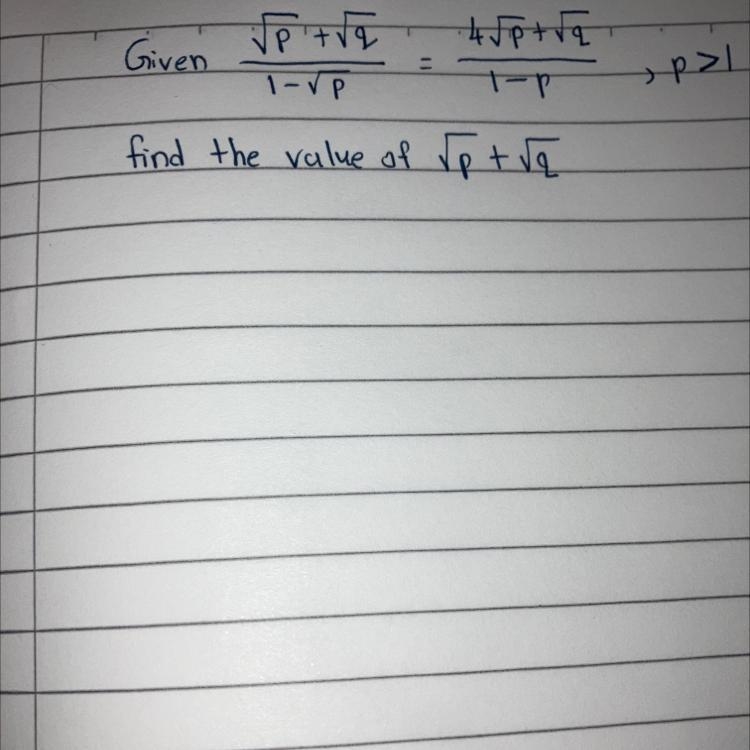 Given (√p + √q)/(1 - √p) = (4√p + √q)/(1 - p) , p > 1
find the value of √p + √q